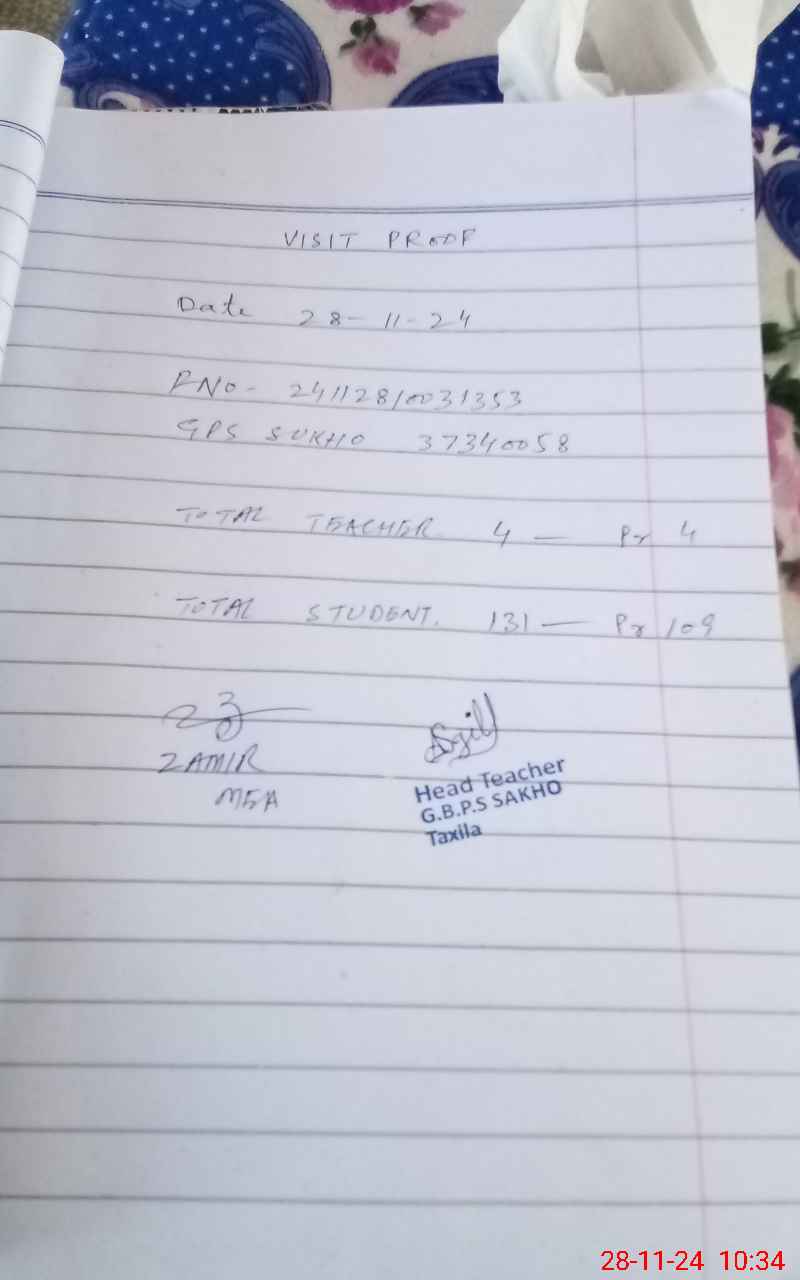 VISIT PROOF
Date 28-11-24
PNO- 24112810031353
GPS SUKHO 37340058
TOTAL TEACHER 4 — Pr 4
TOTAL STUDENT. 131 — Pr 109
ZAMIR
MEA
Head Teacher
G.B.P.S SAKHO
Taxila
28-11-24 10:34